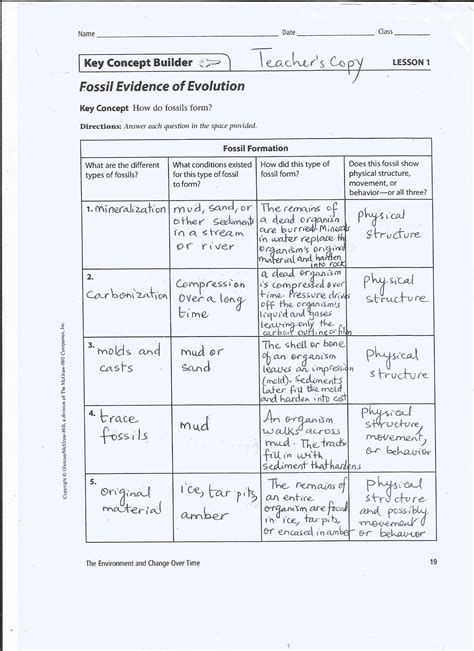 Name Date Class
Key Concept Builder Teacher's Copy LESSON 1
Fossil Evidence of Evolution
Key Concept How do fossils form?
Directions: Answer each question in the space provided.
Fossil Formation
What are the different
types of fossils?
What conditions existed
for this type of fossil
to form?
How did this type of
fossil form?
Does this fossil show
physical structure,
movement, or
behavior—or all three?
1. mineralization
mud, sand, or
other sediments
in a stream
or river
The remains of
a dead organism
are burried. Minerals
in water replace the
organism's original
material and harden
into rock
physical
structure
2.
Carbonization
Compression
over a long
time
a dead organism
is compressed over
time. Pressure drives
off the organism's
liquid and gases
leaving only the
carbon outline or film
physical
structure
3. molds and
casts
mud or
sand
The shell or bone
of an organism
leaves an impression
(mold). Sediments
later fill the mold
and harden into cast
physical
structure
4. trace
fossils
mud
An organism
walks across
mud. The traits
fill in with
sediment that hardens
physical
structure,
movement,
or behavior
5.
original
material
ice, tar pits,
amber
The remains of
an entire
organism are found
in ice, tar pits,
or encased in amber
physical
structure
and possibly
movement
or behavior
Copyright © Glencoe/McGraw-Hill, a division of The McGraw-Hill Companies, Inc.
The Environment and Change Over Time 19